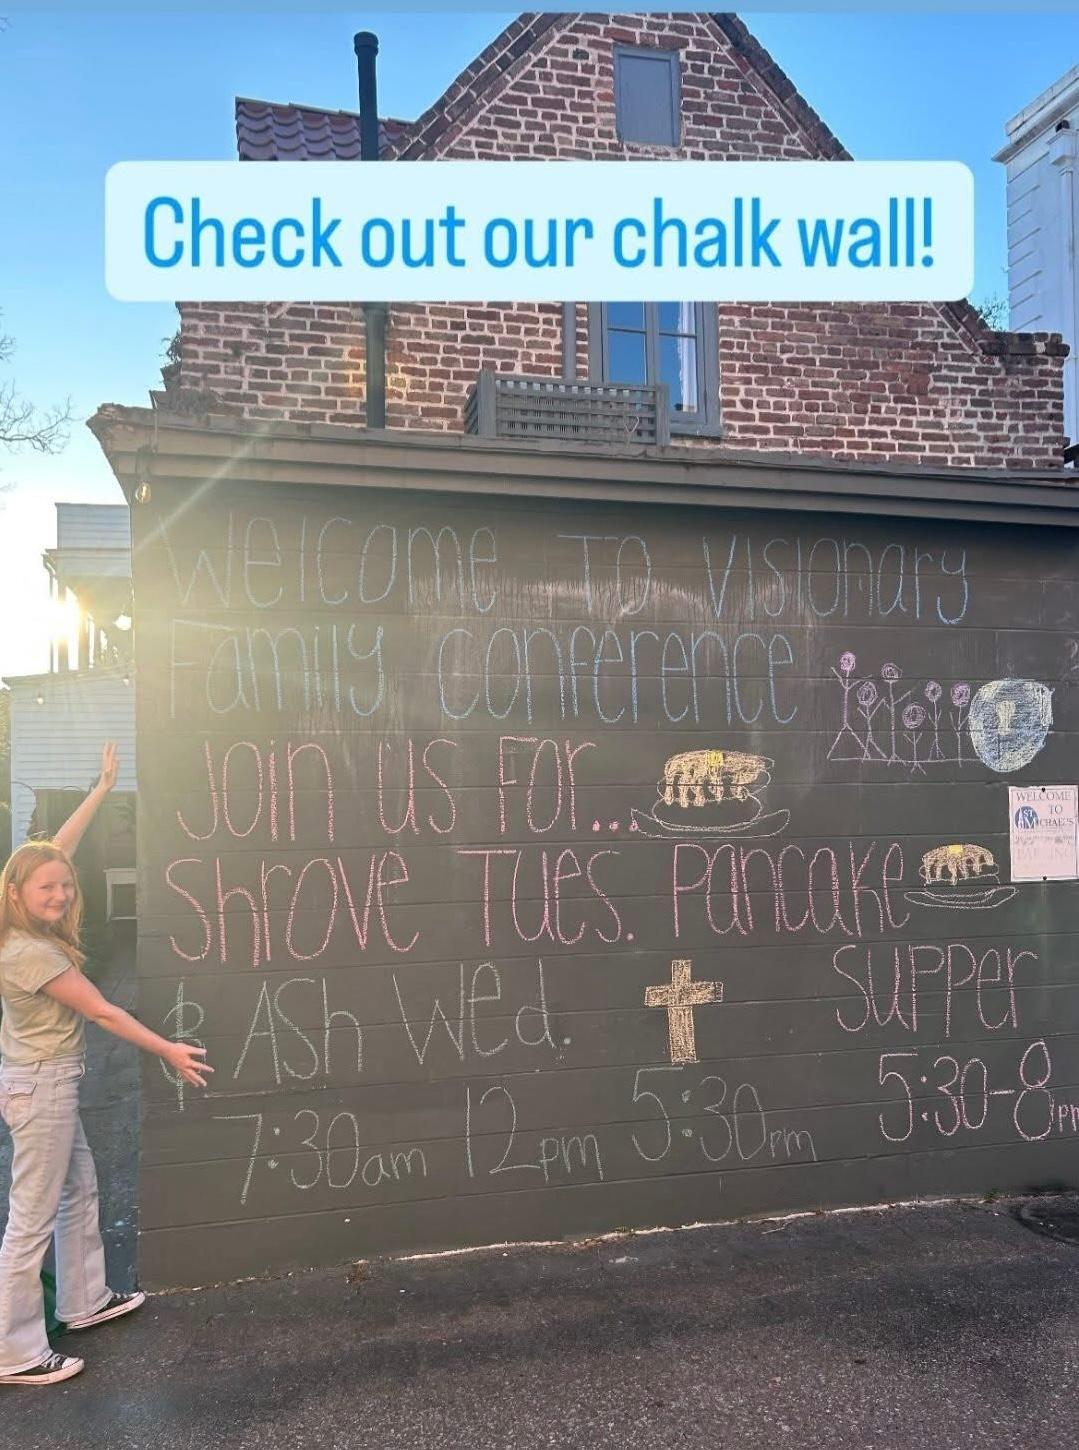 Check out our chalk wall!
Welcome To Visionary
Family conference
Join us For...
Shrove Tues. Pancake
Supper
5:30-8pm
& Ash Wed.
7:30am 12pm 5:30pm
WELCOME
TO